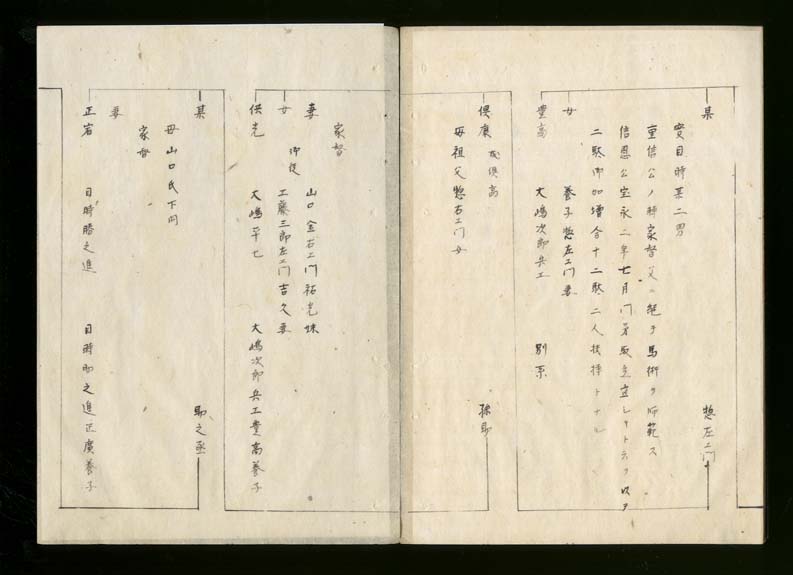 某 惣左エ門
実目時某二男
重信公ノ時家督父ニ継テ馬術ヲ師範ス
信恩公宝永二年七月門弟取立宜シキト云ヲ以テ
二駄御加増合十二駄二人扶持トナル
女 養子惣左エ門妻
豊高 大嶋次郎兵エ 別系
倶廣 或倶高 孫助
母祖父惣右エ門女
家督
妻 山口金右エ門祐光妹
女 御徒 工藤三郎左エ門吉久妻
倶光 大嶋平七 大嶋次郎兵エ豊高養子
某 助之丞
母山口氏下同
家督
妻
正宕 目時勝之進 目時助之進正廣養子